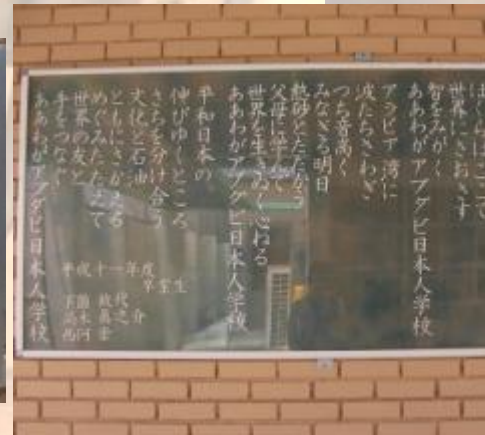 世界にさおさす
智をみがく
ああわがアブダビ日本人学校
アラビア湾に
波たちさわぎ
つち音高く
みなぎる明日
熱砂とたたかう
父母に学んで
世界を生きぬく心ねる
ああわがアブダビ日本人学校
平和日本の
伸びゆくところ
さちを分け合う
文化と石油
ともにさかえる
めぐみたたえて
世界の友と
手をつなぐ
ああわがアブダビ日本人学校
平成十一年度
卒業生